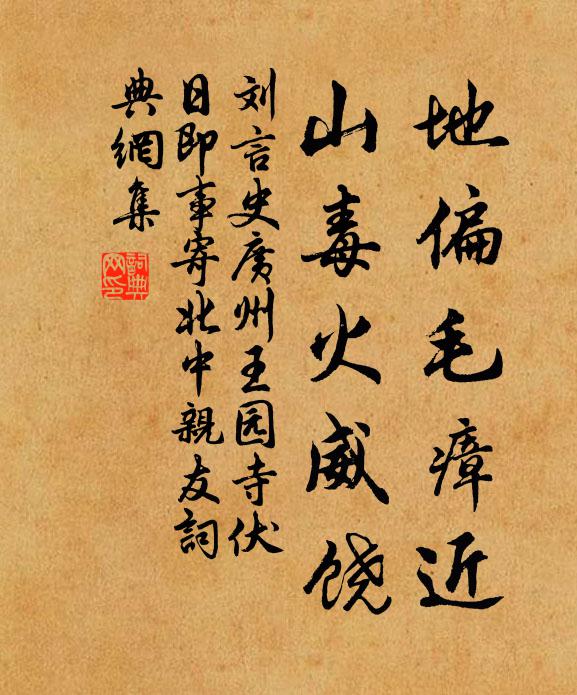 地偏毛瘴近
山毒火威饶
刘言史廣州王园寺伏
日即事寄北中親友詞
典網集
詞典
网印